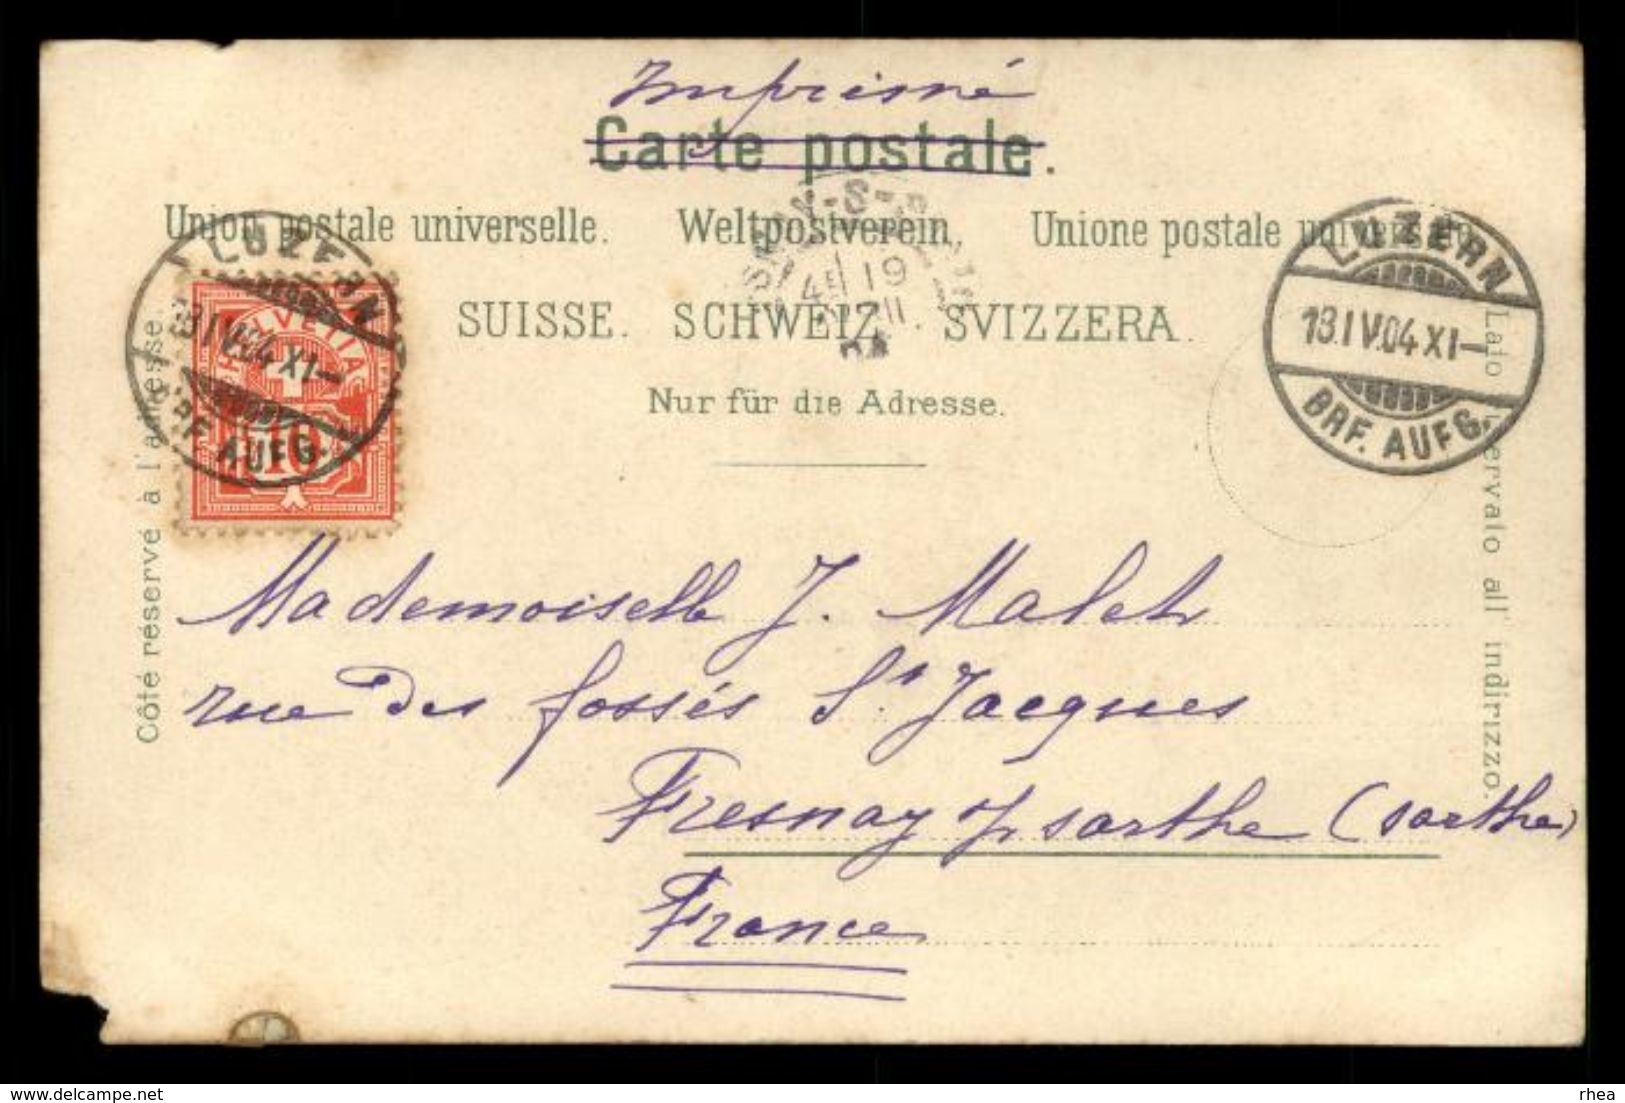 Imprimé
Carte postale.
Union postale universelle. Weltpostverein. Unione postale universale
SUISSE. SCHWEIZ. SVIZZERA.
Nur für die Adresse.
Côté réservé à l'adresse.
Lato riservato all' indirizzo.
LUZERN
13.IV.04 XI—
BRF. AUFG.
HELVETIA
10
LUZERN
13.IV.04 XI—
BRF. AUFG.
19
04
Mademoiselle J. Malet
rue des fossés St Jacques
Fresnay s/ sarthe (sarthe)
France
rhea